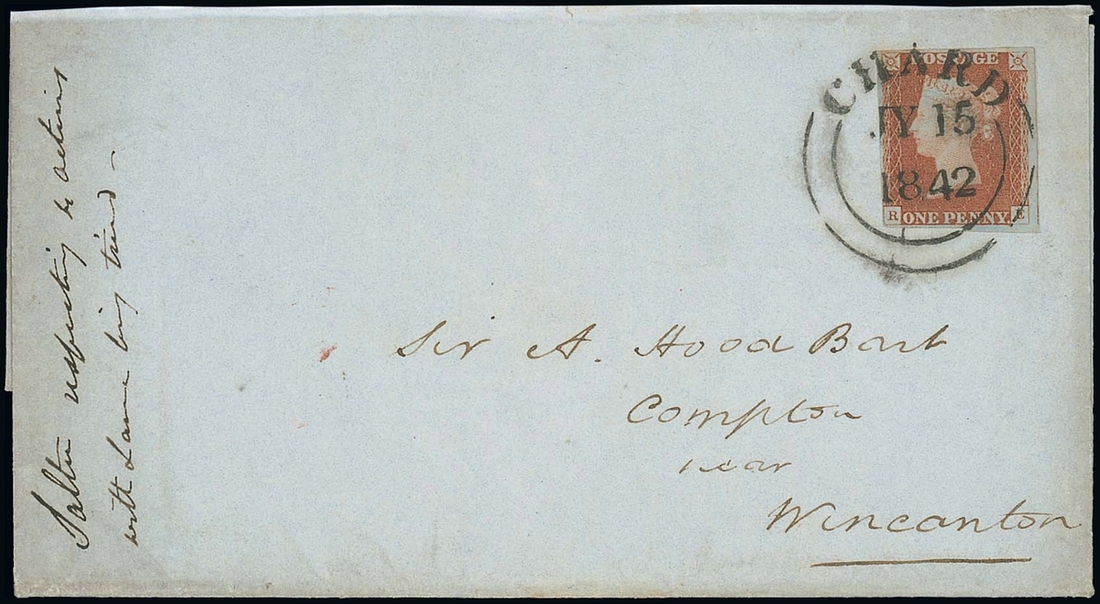 CHARD
JY 15
1842
POSTAGE
R ONE PENNY E
Sir A. Hood Bart
Compton
near
Wincanton
Salter respecting to actions
with Lane being tried –